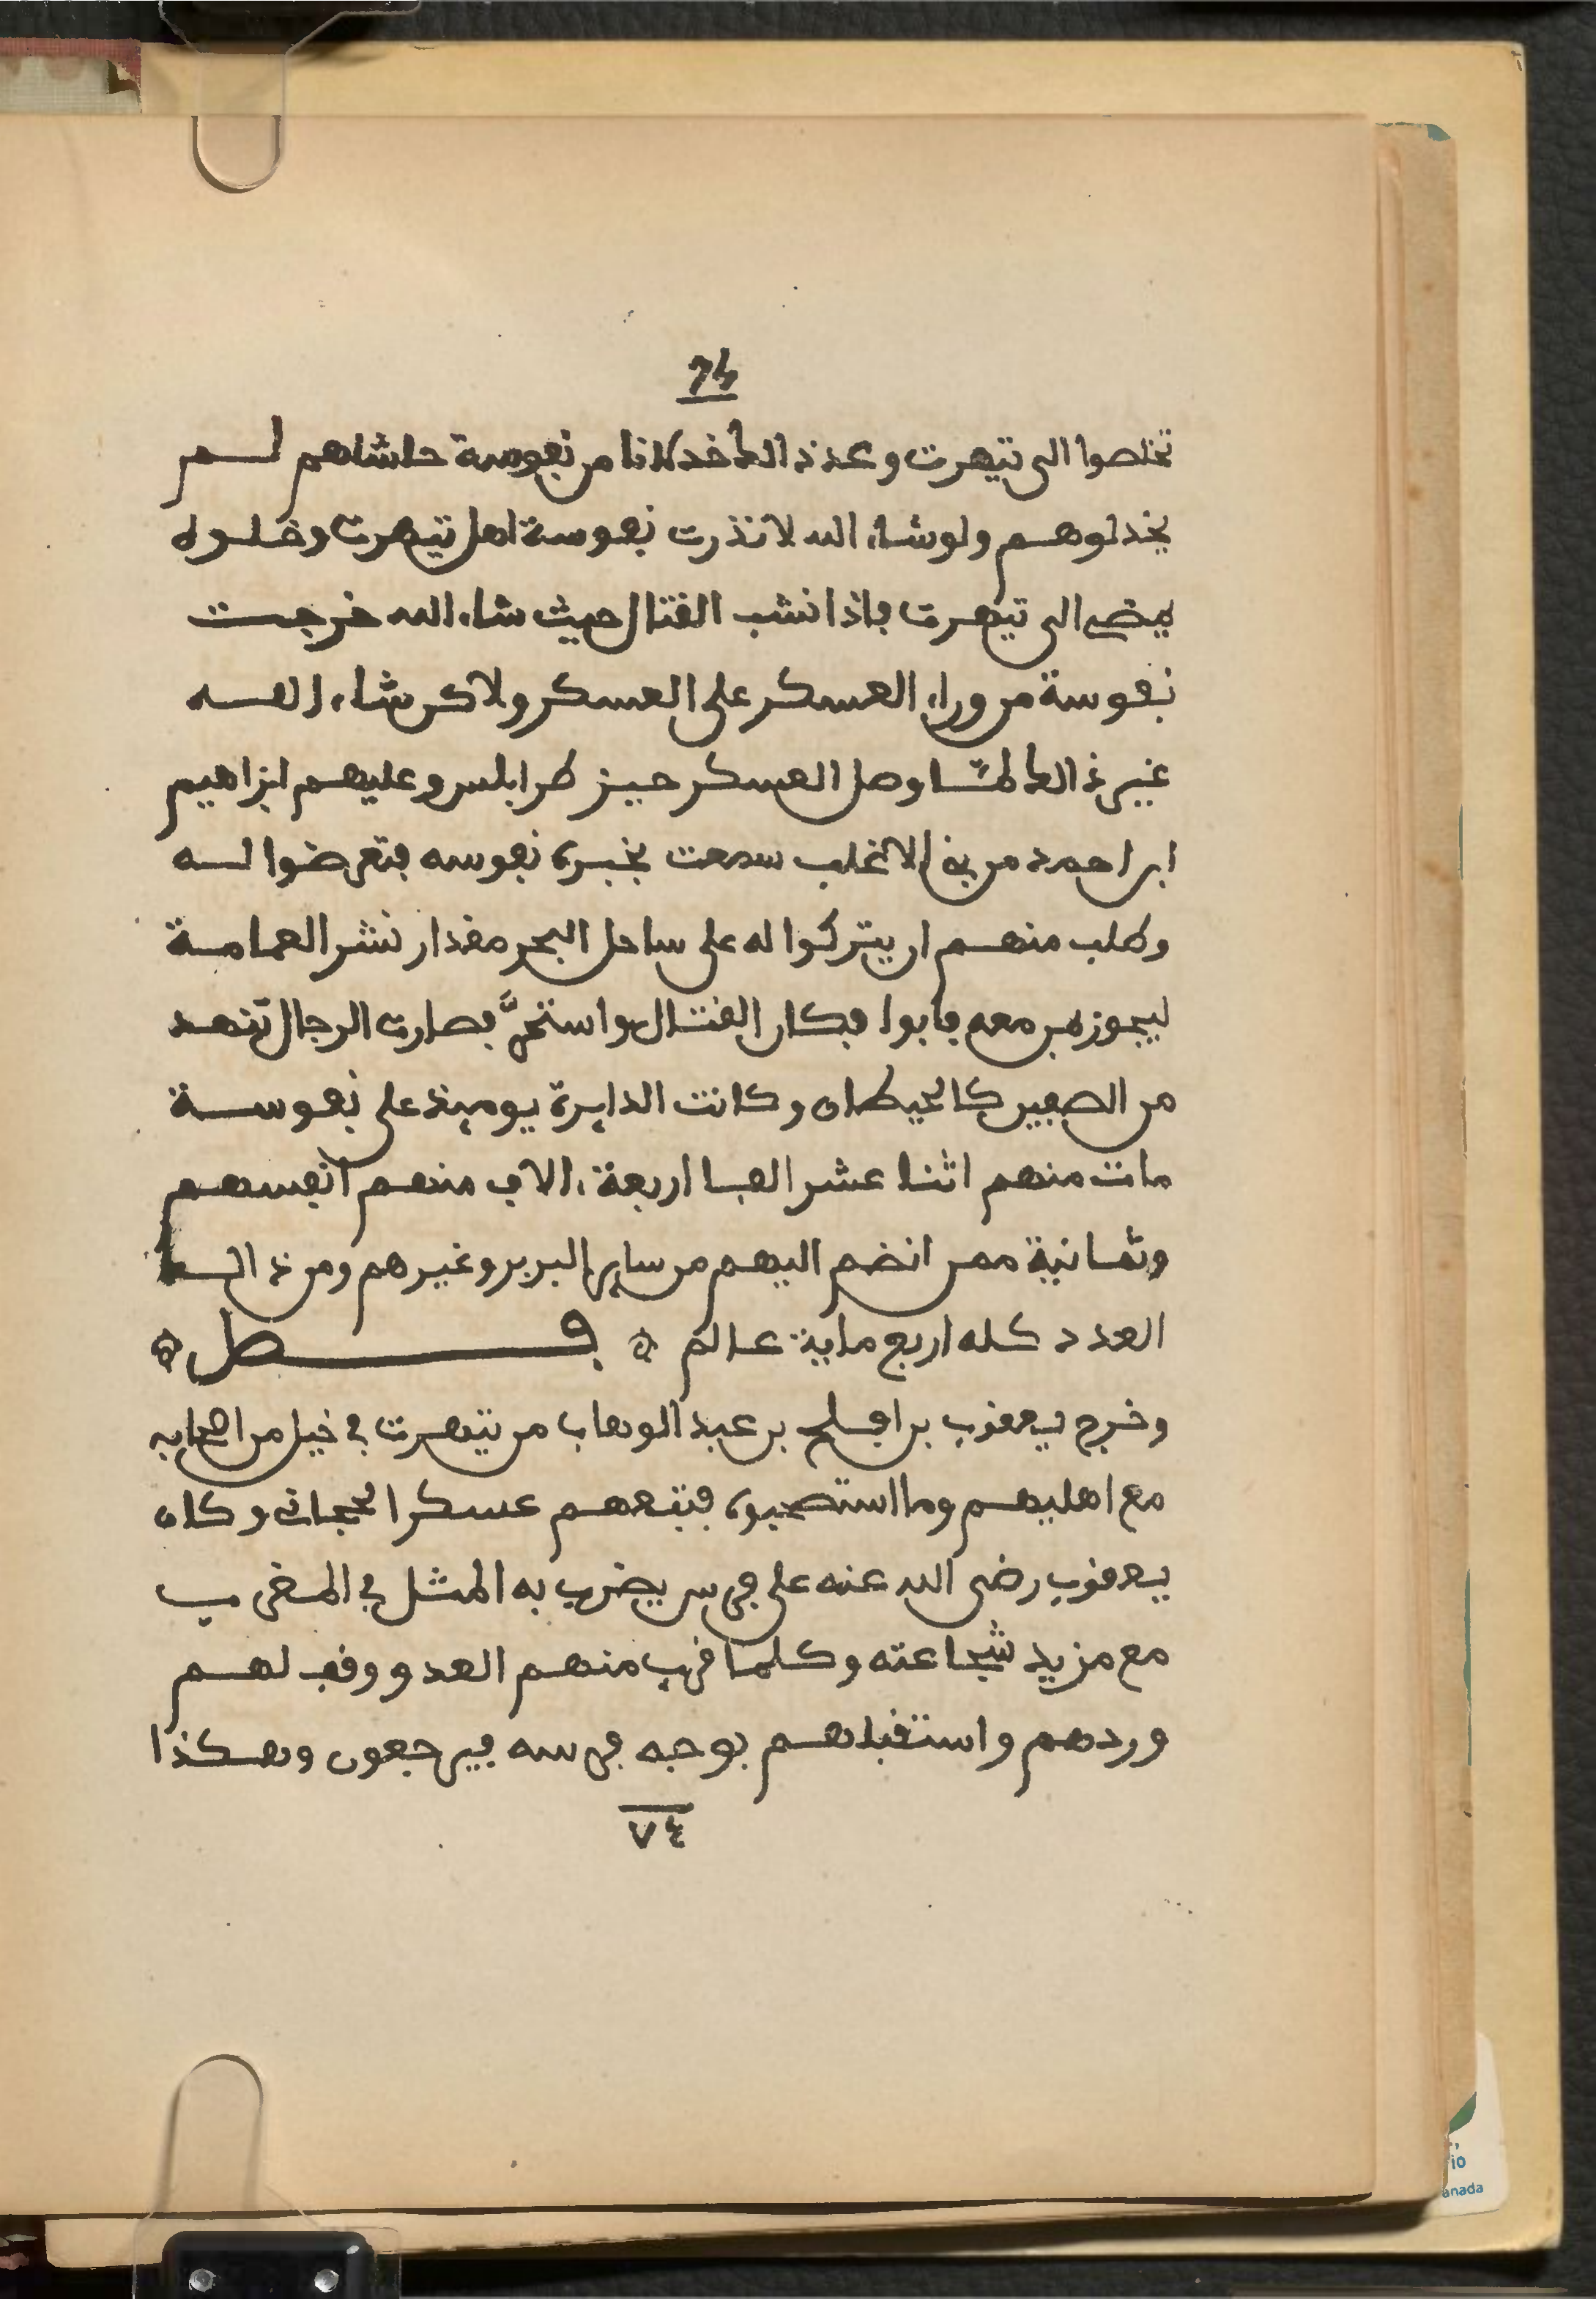 74
تخلصوا الى تيهرت وعدذالك خذلانا من نفوسة حاشاهم لم
يخذلوهم ولو شاء الله لانذرت نفوسة اهل تيهرت وخلوه
يمضى الى تيهرت فاذا نشب القتال حيث شاء الله خرجت
نفوسة من وراء العسكر على العسكر ولاكن شاء الله
غير ذالك لمّا وصل العسكر حيز طرابلس وعليهم ابراهيم
ابن احمد من بنى الاغلب سمعت بخبره نفوسه فتعرضوا له
وطلب منهم ان يتركوا له على ساحل البحر مقدار نشر العمامة
ليجوز بمن معه فابوا فكان القتال واستحرّ فصارت الرجال تنهد
من الصفين كالحيطان وكانت الدايرة يوميذ على نفوسة
مات منهم اثنا عشر الفا اربعة ءالاف منهم انفسهم
وثمانية ممن انضم اليهم من ساير البربر وغيرهم ومن ذالك
العدد كله اربع ماية عالم ۞ فصل ۞
وخرج يعقوب بن افلح بن عبد الوهاب من تيهرت فى خيل من اصحابه
مع اهليهم وما استصحبوه فتبعهم عسكر الحجانى وكان
يعقوب رضى الله عنه على فرس يضرب به المثل فى المغرب
مع مزيد شجاعته وكلما قرب منهم العدو وقف لهم
وردهم واستقبلهم بوجه فرسه فيرجعون وهكذا
٧٤
io
anada